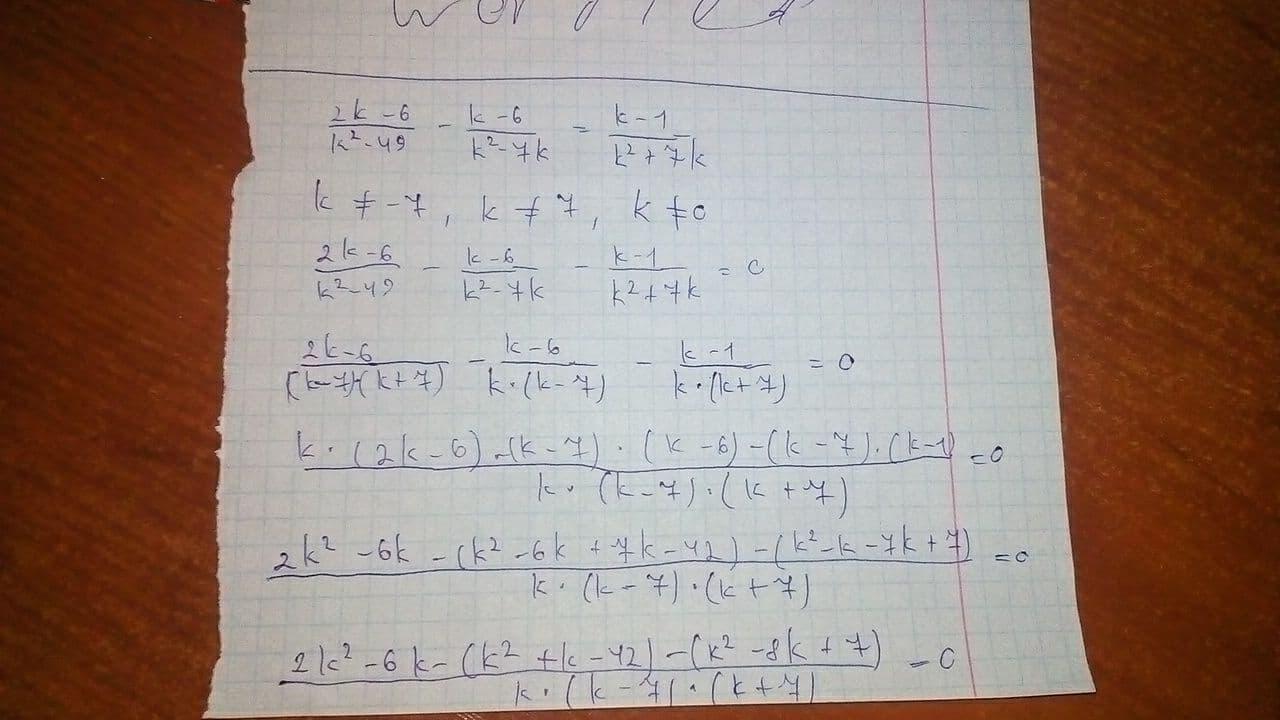 (2k-6)/(k²-49) - (k-6)/(k²-7k) = (k-1)/(k²+7k)
k ≠ -7, k ≠ 7, k ≠ 0
(2k-6)/(k²-49) - (k-6)/(k²-7k) - (k-1)/(k²+7k) = 0
(2k-6)/((k-7)·(k+7)) - (k-6)/(k·(k-7)) - (k-1)/(k·(k+7)) = 0
(k·(2k-6)-(k-7)·(k-6)-(k-7)·(k-1))/(k·(k-7)·(k+7)) = 0
(2k²-6k-(k²-6k+7k-42)-(k²-k-7k+7))/(k·(k-7)·(k+7)) = 0
(2k²-6k-(k²+k-42)-(k²-8k+7))/(k·(k-7)·(k+7)) = 0